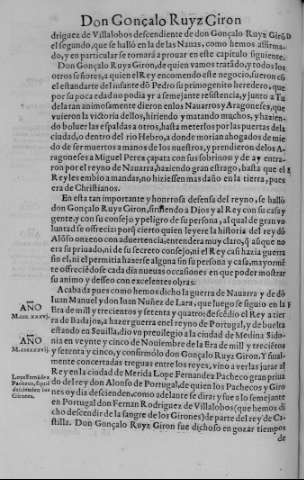 Don Gonçalo Ruyz Giron
driguez de Villalobos descendiente de don Gonçalo Ruyz Girõ,
el segundo, que se halló en la de las Nauas, como hemos affirma-
do, y en particular se tornará a prouar en este capitulo siguiente.
Don Gonçalo Ruyz Giron, de quien vamos tratãdo, y todos los
otros señores, a quien el Rey encomendo este negocio, fueron cõ
el estandarte del infante dõ Pedro su primogenito heredero, que
por su poca edad no podia yr a semejante resistencia, y junto a Tu
dela tan animosamente dieron en los Nauarros y Aragoneses, que
vuieron la victoria dellos, hiriendo y matando muchos, y hazien-
do boluer las espaldas a otros, hasta meterlos por las puertas de la
ciudad, o dentro del rio Hebro, a donde morian ahogados de mie-
do de ser muertos a manos de los nuestros, y prendieron de los A-
ragoneses a Miguel Perez çapata con sus sobrinos y de ay entra-
ron por el reyno de Nauarra, haziendo gran estrago, basta que el
Rey les embio a mandar, no hiziessen mas daño en la tierra, pues
era de Christianos.
En esta tan importante y honrosa defensa del reyno, se halló
don Gonçalo Ruyz Giron, siruiendo a Dios y al Rey con su casa y
gente, y con su consejo y peligro de su persona, al qual de gran vo-
luntad se offrecia: porq̃ cierto quien leyere la historia del rey dõ
Alõso onzeno con aduertencia, entendera muy claro, q̃ aũque no
era su priuado, ni de su secreto consejo, ni el Rey casi hazia guerra
sin el, ni el permitia hazerse alguna sin su persona y casa, mayormẽ
te offreciẽdose cada dia nueuas occasiones en que poder mostrar
su animo y desseo con excelentes obras.
Acabada pues como hemos dicho la guerra de Nauarra y de dõ
ANO
Iuan Manuel y don Iuan Nuñez de Lara, que luego se siguio en la
ra de mill y trecientos y setenta y quatro: descẽdio el Rey a tier
ra de Badajoz, a hazer guerra en el reyno de Portugal, y de buelta
estando en Seuilla, dio vn preuilegio a la ciudad de Medina Sido-
ANO
nia en veynte y cinco de Nouiembre de la Era de mill y treciẽtos
y setenta y cinco, y confirmólo don Gonçalo Ruyz Giron. Y final-
mente concertadas treguas entre los reyes, vino a verlas jurar el
Rey en la ciudad de Merida Lope Fernandez Pacheco gran priua
do del rey don Alonso de Portugal, de quien los Pachecos y Giro
nes oy dia descienden, como adelante se dira: y fue a lo semejante
Girones.
en Portugal don Fernan Rodriguez de Villalobos (que hemos di
cho descendir de la sangre de los Girones) de parte del rey de Ca-
stilla. Don Gonçalo Ruyz Giron fue dichoso en gozar tiempos
de